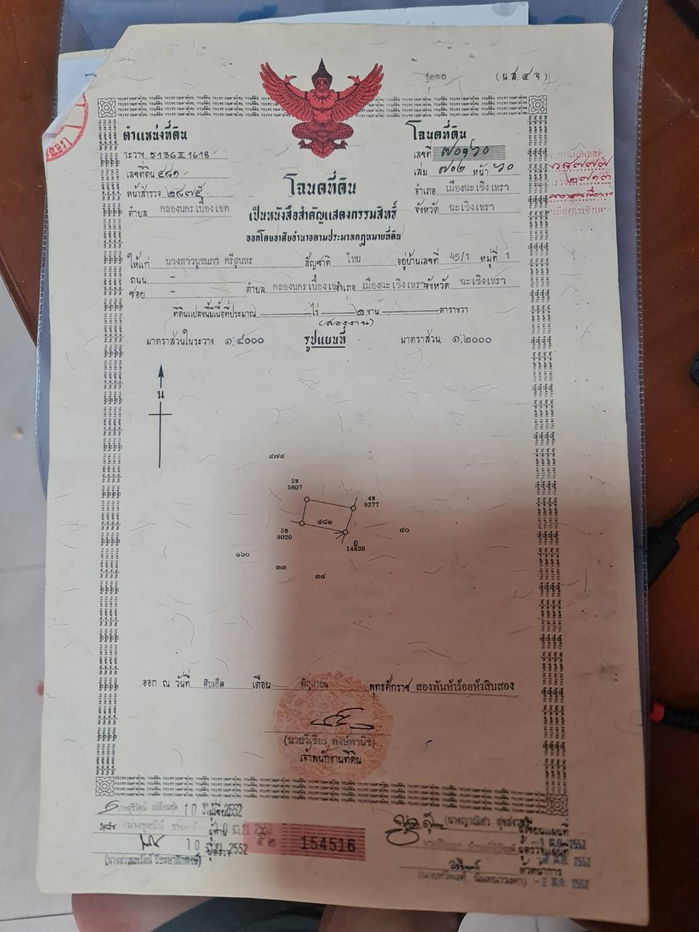 (น.ส.๔ จ.)
ตำแหน่งที่ดิน
โฉนดที่ดิน
ระวาง 5136 II 1618
เลขที่ ๗๐๑๖๐
เลขที่ดิน ๔๘๑
เล่ม ๗๐๒ หน้า ๖๐
หน้าสำรวจ ๒๘๗๕
อำเภอ เมืองฉะเชิงเทรา
ตำบล คลองนครเนื่องเขต
จังหวัด ฉะเชิงเทรา
โฉนดที่ดิน
เป็นหนังสือสำคัญแสดงกรรมสิทธิ์
ออกโดยอาศัยอำนาจตามประมวลกฎหมายที่ดิน
ให้แก่ นางสาว สัญชาติ ไทย อยู่บ้านเลขที่ 45/1 หมู่ที่ 1
ถนน -
ซอย - ตำบล คลองนครเนื่องเขต อำเภอ เมืองฉะเชิงเทรา จังหวัด ฉะเชิงเทรา
ที่ดินแปลงนี้มีเนื้อที่ประมาณ - ไร่ ๒ งาน - ตารางวา
(สองงาน)
มาตราส่วนในระวาง ๑:๔๐๐๐ รูปแผนที่ มาตราส่วน ๑:๒๐๐๐
น
๔๗๔
5ข
5807
4ข
9277
๔๘๑
5ข
9020
๔๐
14638
๑๖๐
๓๓
๓๔
ออก ณ วันที่ สิบเอ็ด เดือน มิถุนายน พุทธศักราช สองพันห้าร้อยห้าสิบสอง
(นายวิเชียร พงษ์พานิช)
เจ้าพนักงานที่ดิน
10 2552
154516
10 มิ.ย. 2552